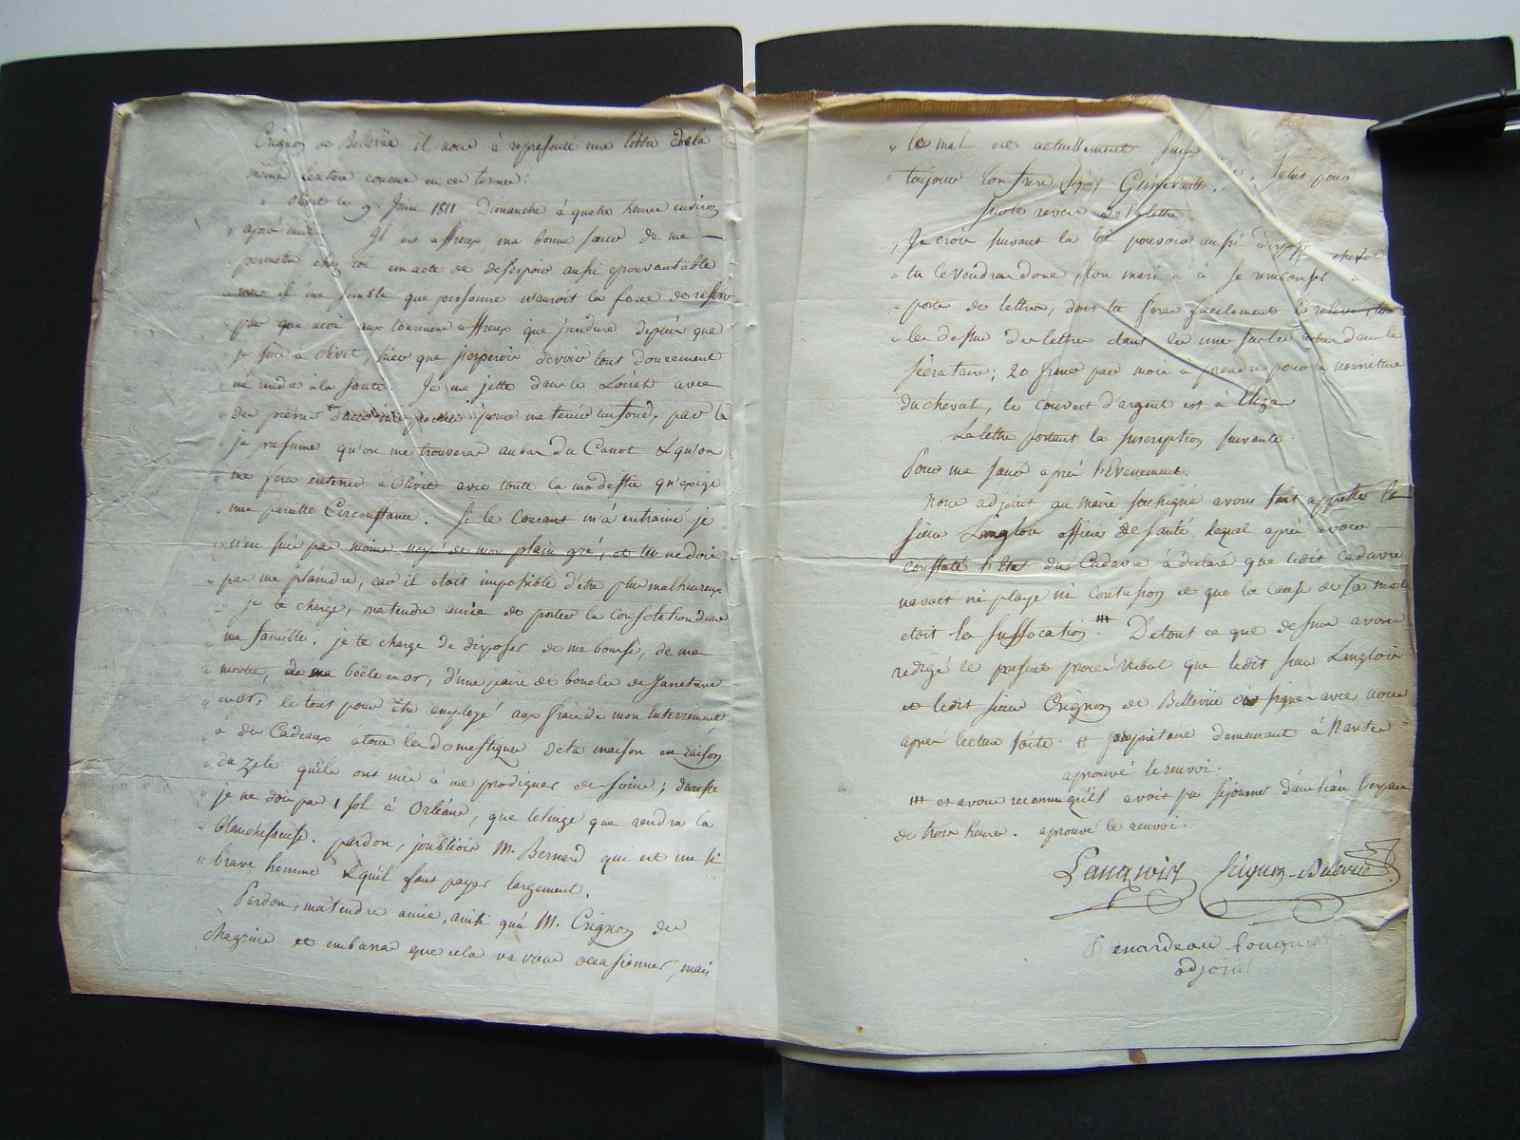 Crignon de Bellevüe il nous à represente une lettre de la
même lecture concue en ces termes:
Olivet le 9 Juin 1811 Dimanche à quatre heures environ
après midi Il est affreux ma bonne sœur de me
permettre chez toi un acte de desespoir aussi épouvantable
mais il me semble que personne n'auroit la force de resister
que moi aux tourmens affreux que j'endure depuis que
je suis à olivet, bien que j'esperois devoir tout doucement
me rendre à la santé Je me jette dans le Loiret avec
des pierres pour me tenir au fond, par là
je presume qu'on me trouvera au bas du Canot & qu'on
me fera enterrer à Olivet avec toute la modestie qu'exige
une pareille Circonstance. Si le Courant m'a entrainé je
n'en suis pas moins de mon plain gré, et tu ne dois
pas me plaindre, car il étoit impossible d'être plus malheureux
je te charge, ma tendre amie de porter la consolation dans
ma famille. je te charge de disposer de ma bourse, de ma
montre, de ma boëte en or, d'une paire de boucles de Jarretiere
en or, le tout pour être employé aux frais de mon Enterrement
à des Cadeaux a tous les domestiques de ta maison en raison
du zele qu'ils ont mis à me prodiguer des soins; du reste
je ne dois pas 1 sol à Orléans, que le linge que rendra la
blanchisseuse. pardon, j'oubliois M. Bernard qui est un si
brave homme & qu'il faut payer largement.
Pardon, ma tendre amie, ainsi qu'à M. Crignon des
chagrins et embarras que cela va vous occasionner, mais
le mal est actuellement fait
toujours ton frere Plus pour
sur le revers de la lettre
Je crois suivant la loi pouvoir aussi cheval
tu le voudras donc, ton mari à Je
porte de lettres, dont tu feras facilement
les dessus des lettres dans le
Secretaire; 20 francs par mois à prendre pour la nourriture
du cheval, le couvert d'argent est à Eliza
La lettre portant la suscription suivante
Pour ma sœur après l'évenement.
Nous adjoint au maire soussigné avons fait appeller le
sieur Langlois officier de santé lequel après avoir
constaté l'état du Cadavre à déclaré que ledit cadavre
n'avoit ni playe ni contusion et que la cause de sa mort
etoit la suffocation. De tout ce que dessus avons
redigé le present procès Verbal que ledit sieur Langlois
et ledit sieur Crignon de Bellevüe ont signés avec nous
après lecture faite. et propriétaire demeurant à Nantes
aprouvé le renvoi.
et avons reconnu qu'il avoit pu séjourner dans l'eau l'espace
de trois heures. aprouvé le renvoi.
Langlois Crignon-Bellevüe
Renardeau
adjoint